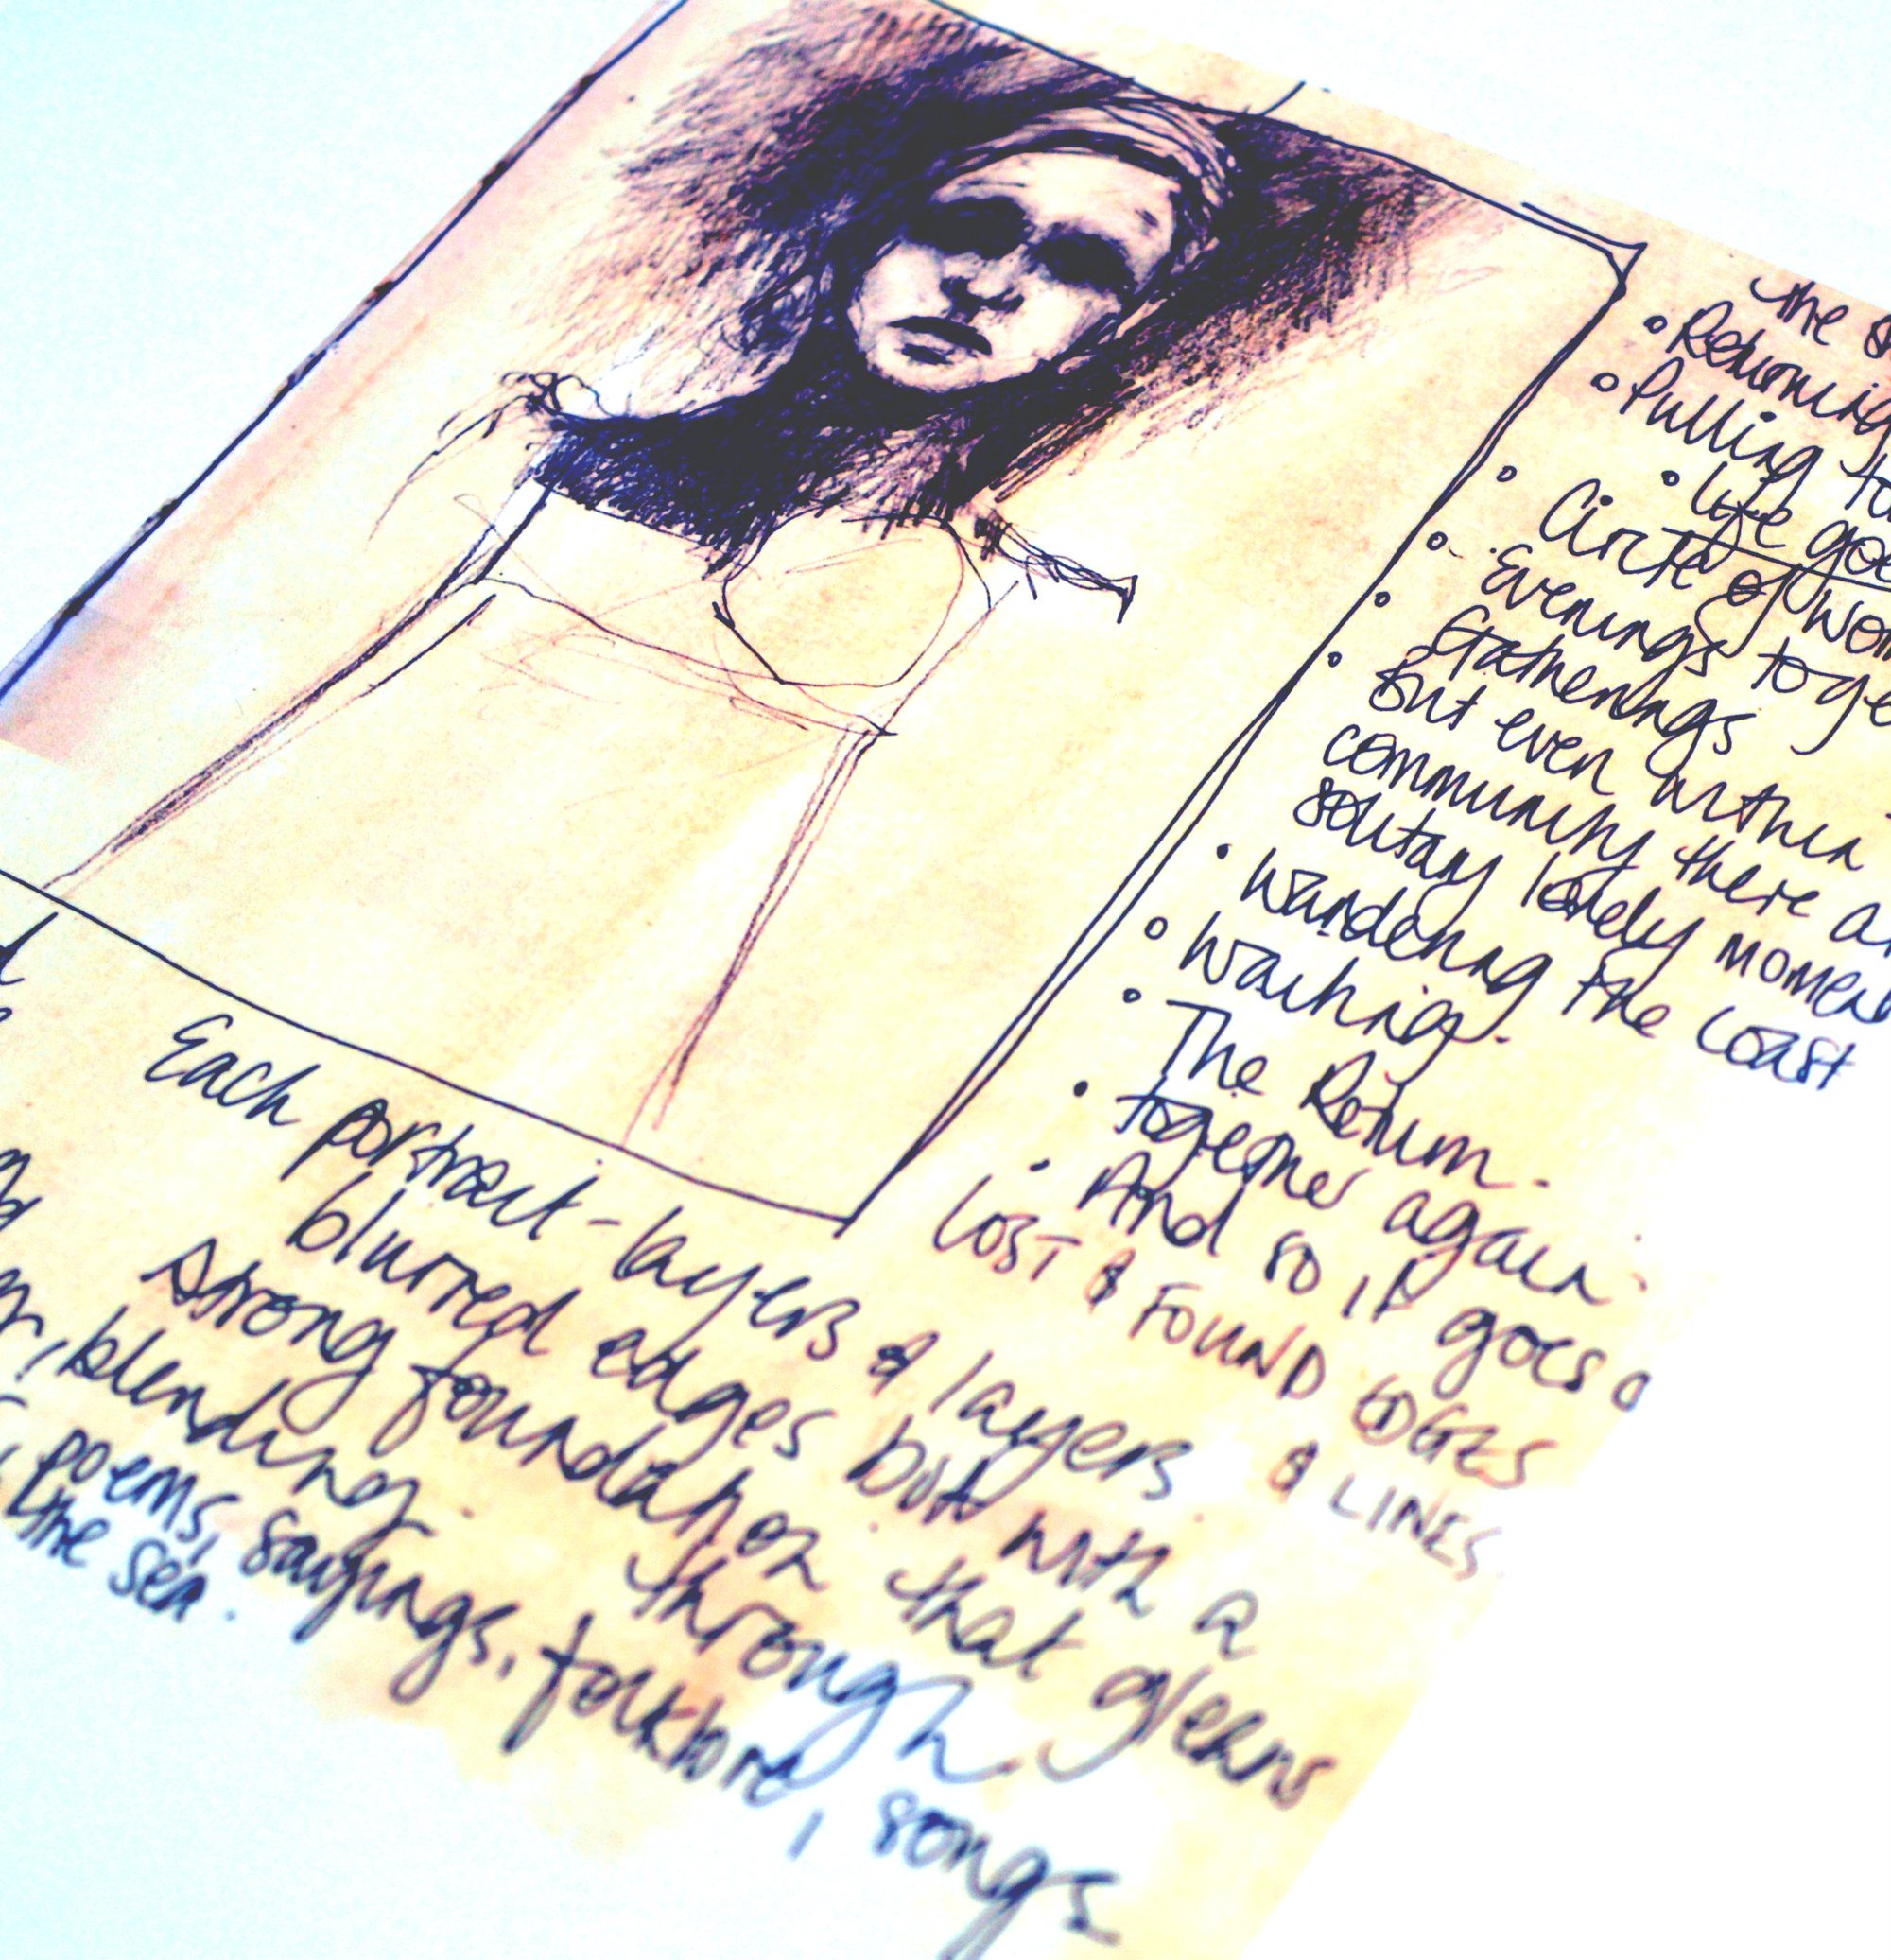 the
Returning
Pulling to
life goes
Circle of Wom
Evenings toge
Gatherings
But even within
community there a
solitary lonely momen
wandering the coast
Waiting.
The Return.
together again.
And so it goes
LOST & FOUND EDGES
& LINES
Each portrait - layers & layers
blurred edges but with a
strong foundation that gleans
through
blending.
poems, sayings, folklore, songs
the sea.